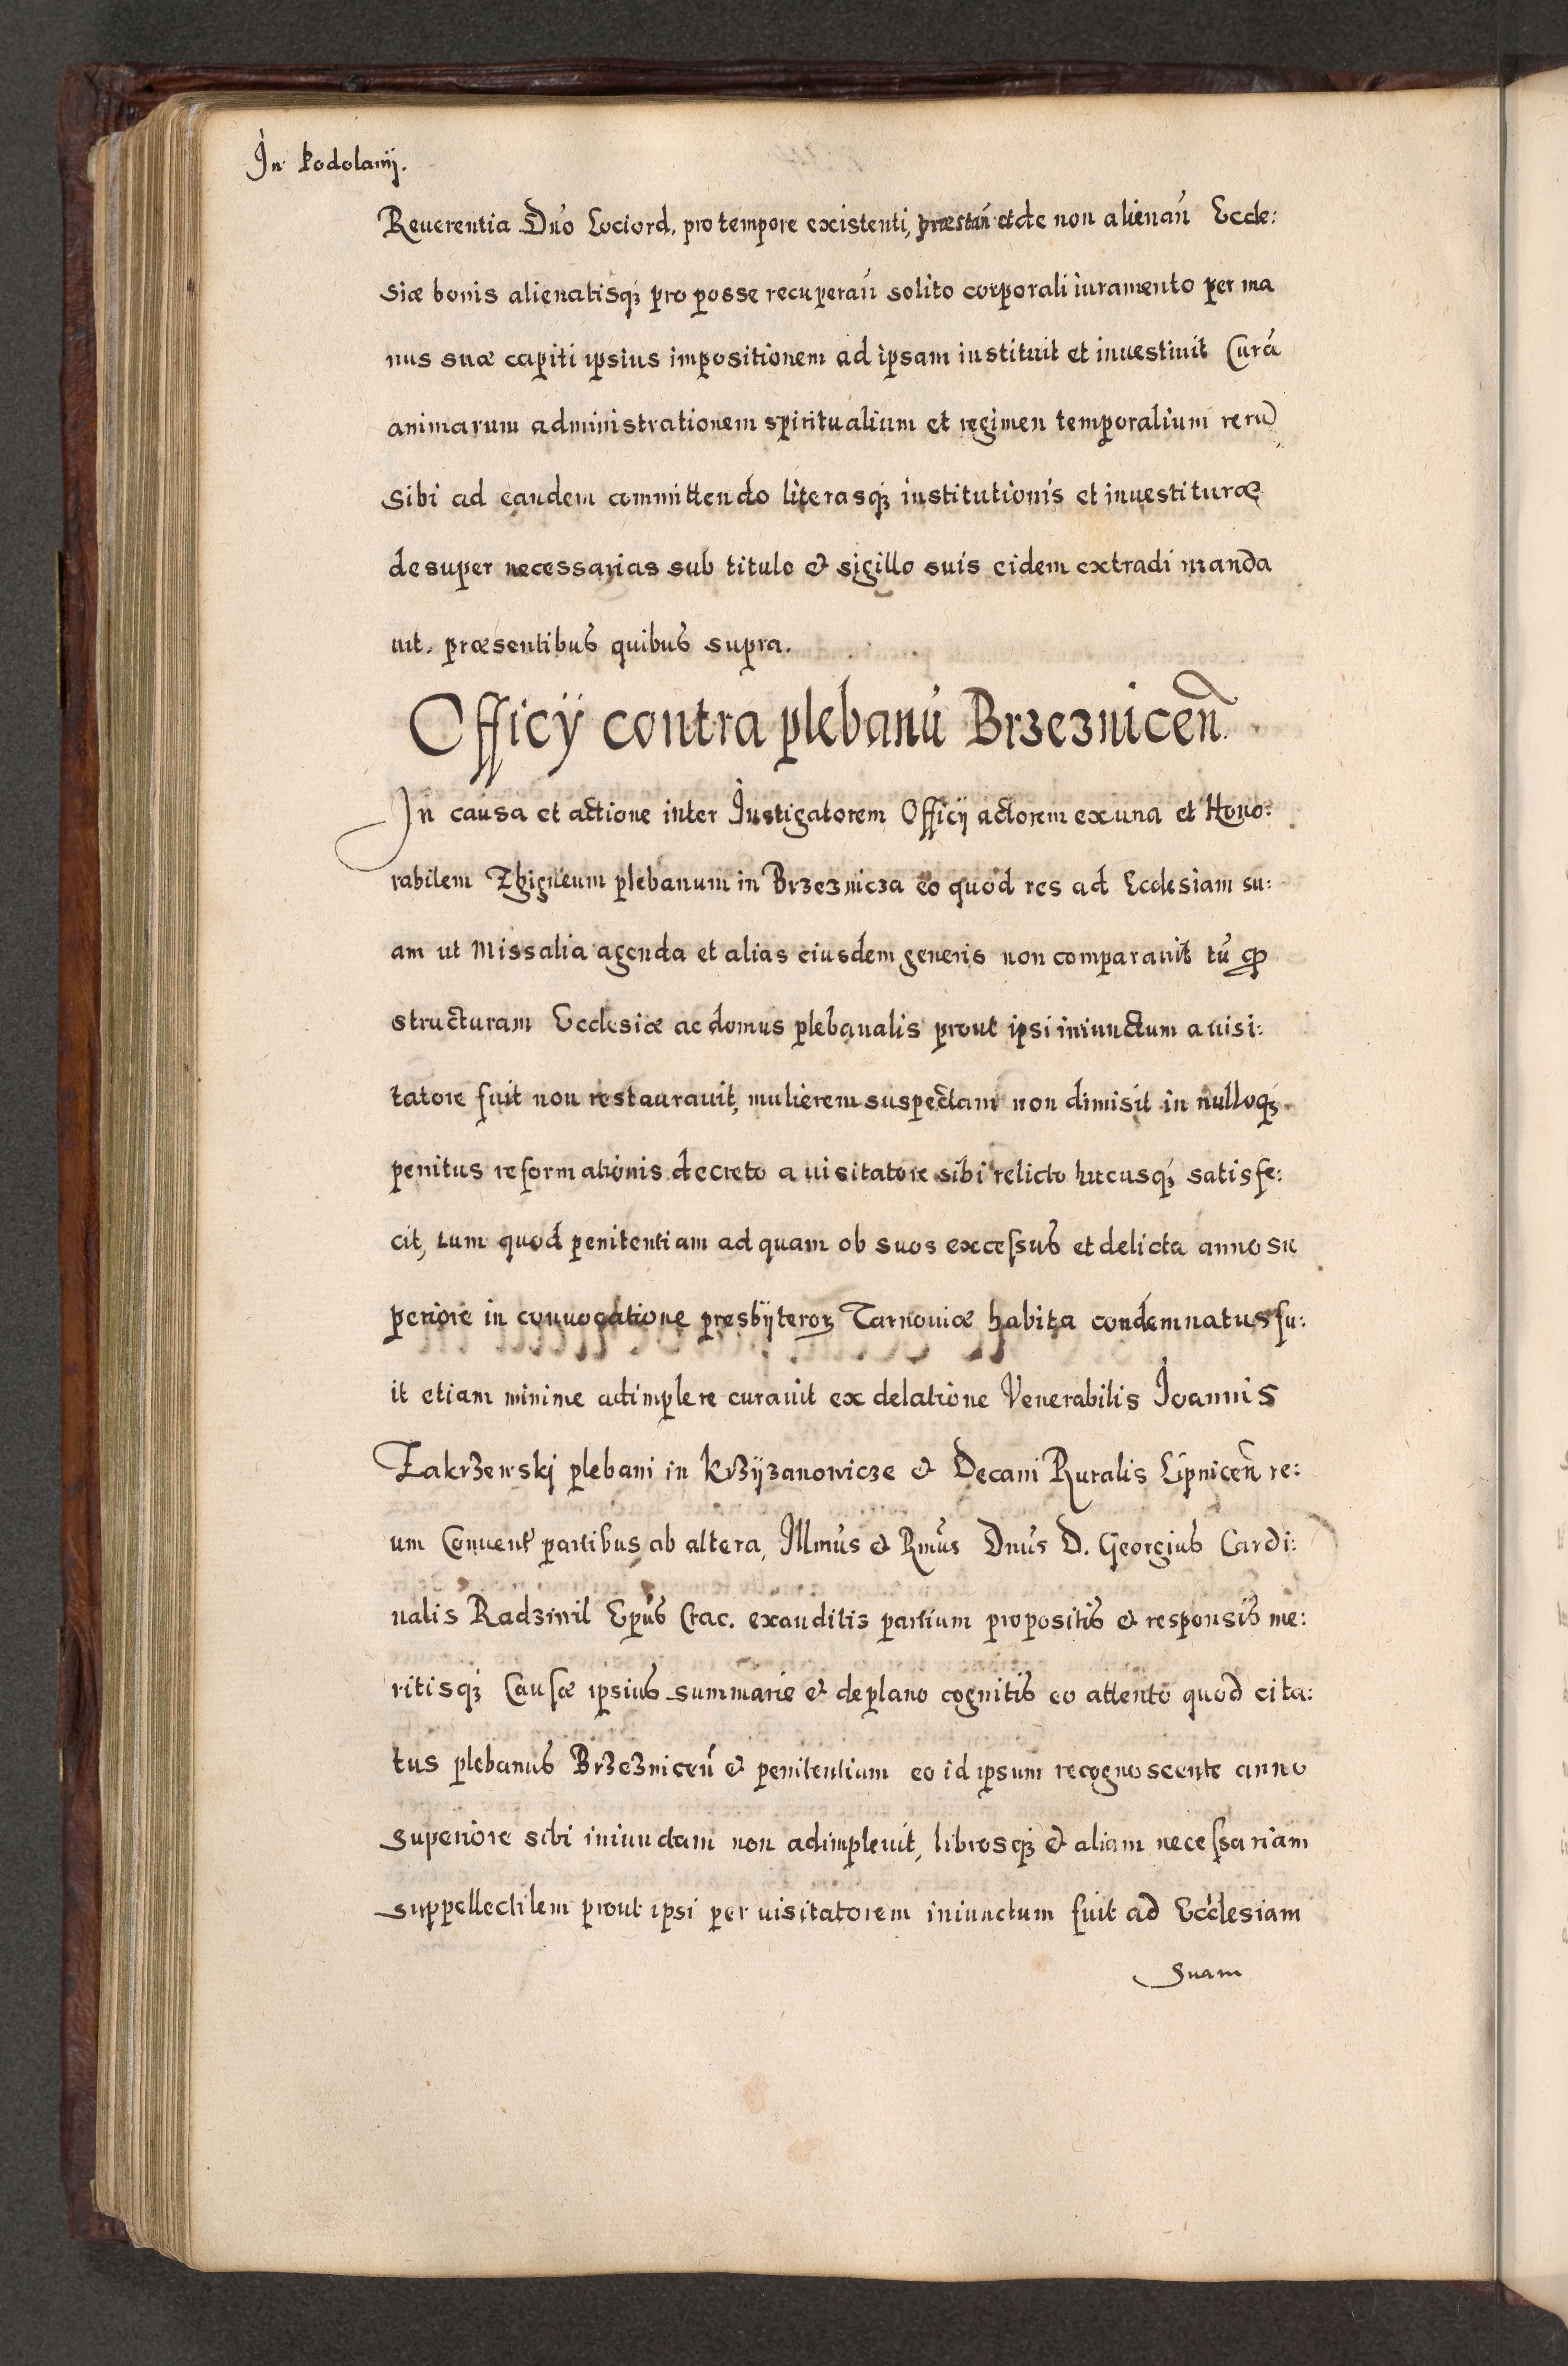 In Podolanÿ.
Reuerentia Dño Lociord. pro tempore existenti, præstań et de non alienań Eccle:
siæ bonis alienatisq́ȝ pro posse recuperań solito corporali iuramento per ma
nus suæ capiti ipsius impositionem ad ipsam instituit et inuestiuit Curā
animarum administrationem spiritualium et regimen temporalium rerū
sibi ad eandem committendo literasq́ȝ institutionis et inuestituræ
desuper necessarias sub titulo & sigillo suis eidem extradi manda
uit. præsentibus quibus supra.
Officÿ contra plebanū Brzeznicen̄.
In causa et actione inter Instigatorem Officÿ actorem ex una et Hono:
rabilem Zbigneum plebanum in Brzeznicza eo quod res ad Ecclesiam su:
am ut Missalia agenda et alias eiusdem generis non comparauit tū ꝙ
structuram Ecclesiæ ac domus plebanalis prout ipsi iniunctum a uisi:
tatore fuit non restaurauit, mulierem suspectam non dimisit in nulloq́ȝ
penitus reformationis decreto a uisitatore sibi relicto hucusq́ȝ satisfe:
cit, tum quod penitentiam ad quam ob suos excessus et delicta anno su
periore in conuocatione presbÿteroꝝ Tarnouiæ habita condemnatus fu:
it etiam minime adimplere curauit ex delatione Venerabilis Joannis
Zakrzewskj plebani in Krzÿzanowicze & Decani Ruralis Lipnicen̄ re:
um Conuent̄ partibus ab altera, Illmūs & Rmūs Dnūs D. Georgius Cardi:
nalis Radziwil Epūs Crac. exauditis partium propositis & responsis me:
ritisq́ȝ Causæ ipsius summarie & de plano cognitis eo attento quod cita:
tus plebanus Brzeznicen̄ & penitentium eo id ipsum recognoscente anno
superiore sibi iniunctam non adimpleuit, librosq́ȝ & aliam necessariam
suppellectilem prout ipsi per uisitatorem iniunctum fuit ad Ecclesiam
suam